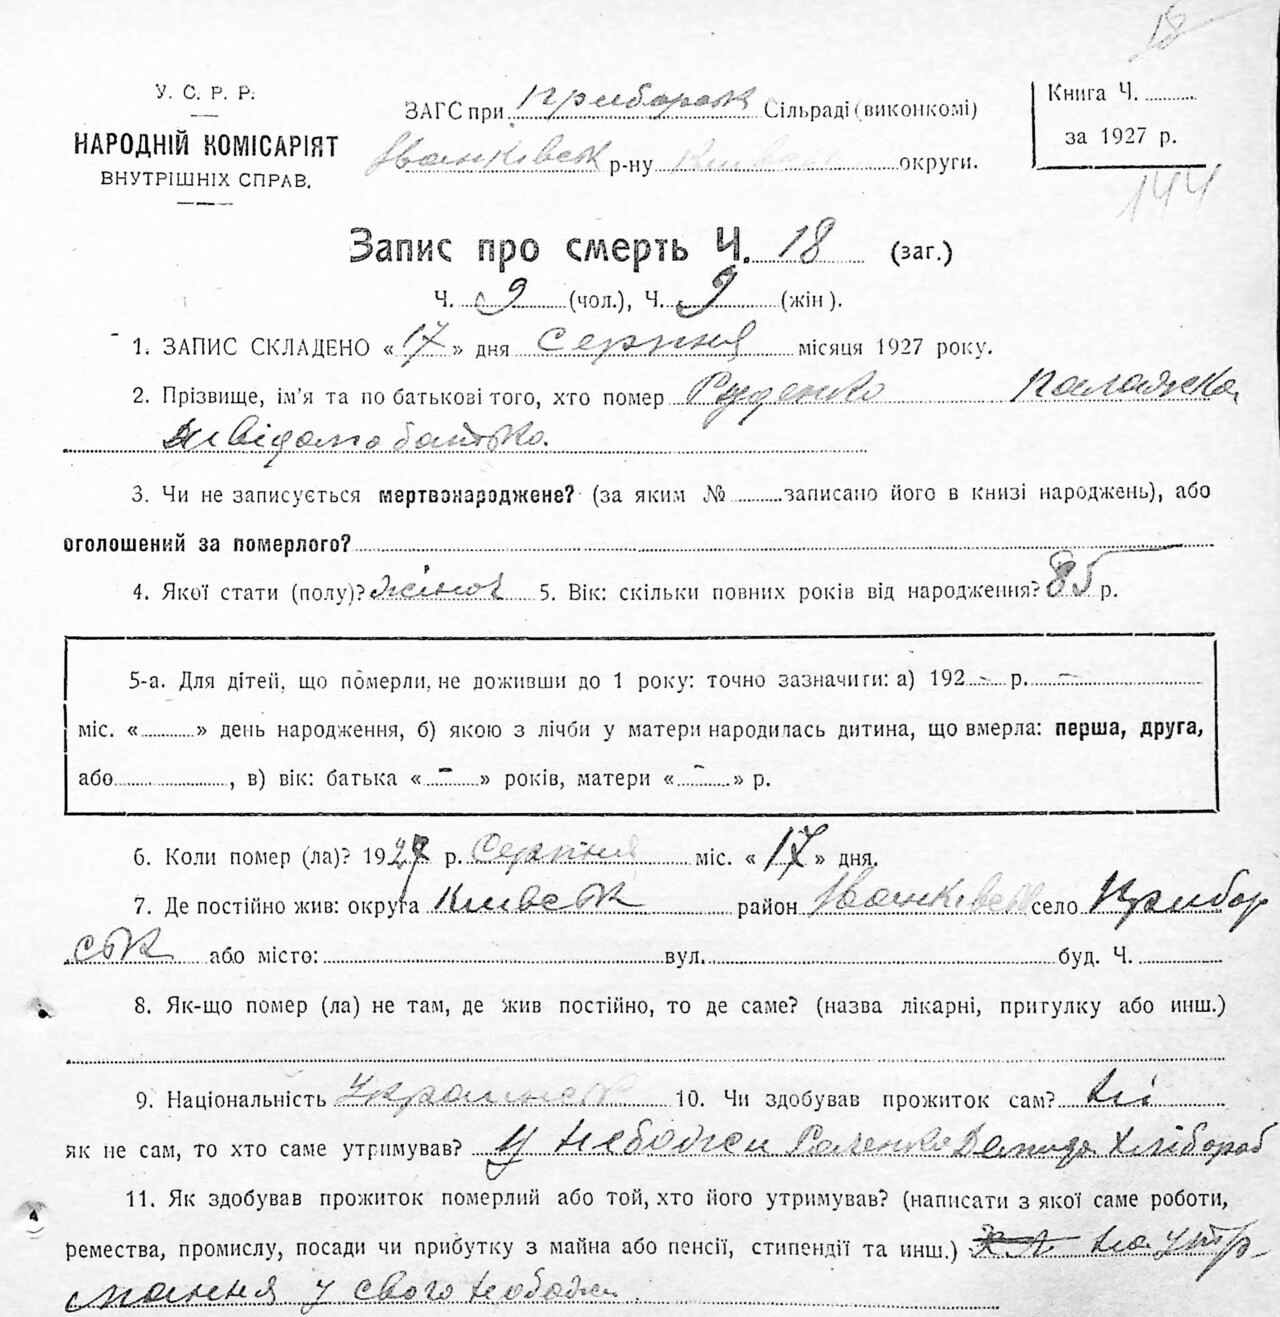 18
У. С. Р. Р.
НАРОДНІЙ КОМІСАРІЯТ
ВНУТРІШНІХ СПРАВ.
ЗАГС при Приборськ Сільраді (виконкомі)
Іванківськ р-ну Київськ округи.
Книга Ч.
за 1927 р.
144
Запис про смерть Ч. 18 (заг.)
Ч. 9 (чол.), Ч. 9 (жін).
1. ЗАПИС СКЛАДЕНО « 17 » дня серпня місяця 1927 року.
2. Прізвище, ім'я та по батькові того, хто помер Руденко Палажка
батько.
3. Чи не записується мертвонароджене? (за яким № записано його в книзі народжень), або
оголошений за померлого?
4. Якої стати (полу)? жіноч 5. Вік: скільки повних років від народження? 85 р.
5-а. Для дітей, що померли, не доживши до 1 року: точно зазначити: а) 192 - р. -
міс. « » день народження, б) якою з лічби у матери народилась дитина, що вмерла: перша, друга,
або , в) вік: батька « - » років, матери « - » р.
6. Коли помер (ла)? 1927 р. Серпня міс. « 17 » дня.
7. Де постійно жив: округа Київськ район Іванківськ село Прибор
ськ або місто: вул. буд. Ч.
8. Як-що помер (ла) не там, де жив постійно, то де саме? (назва лікарні, притулку або инш.)
9. Національність Украинск 10. Чи здобував прожиток сам? Ні
як не сам, то хто саме утримував? У небожи Демида Хлібороб
11. Як здобував прожиток померлий або той, хто його утримував? (написати з якої саме роботи,
ремества, промислу, посади чи прибутку з майна або пенсії, стипендії та инш.) на утр
мання у свого небожи.